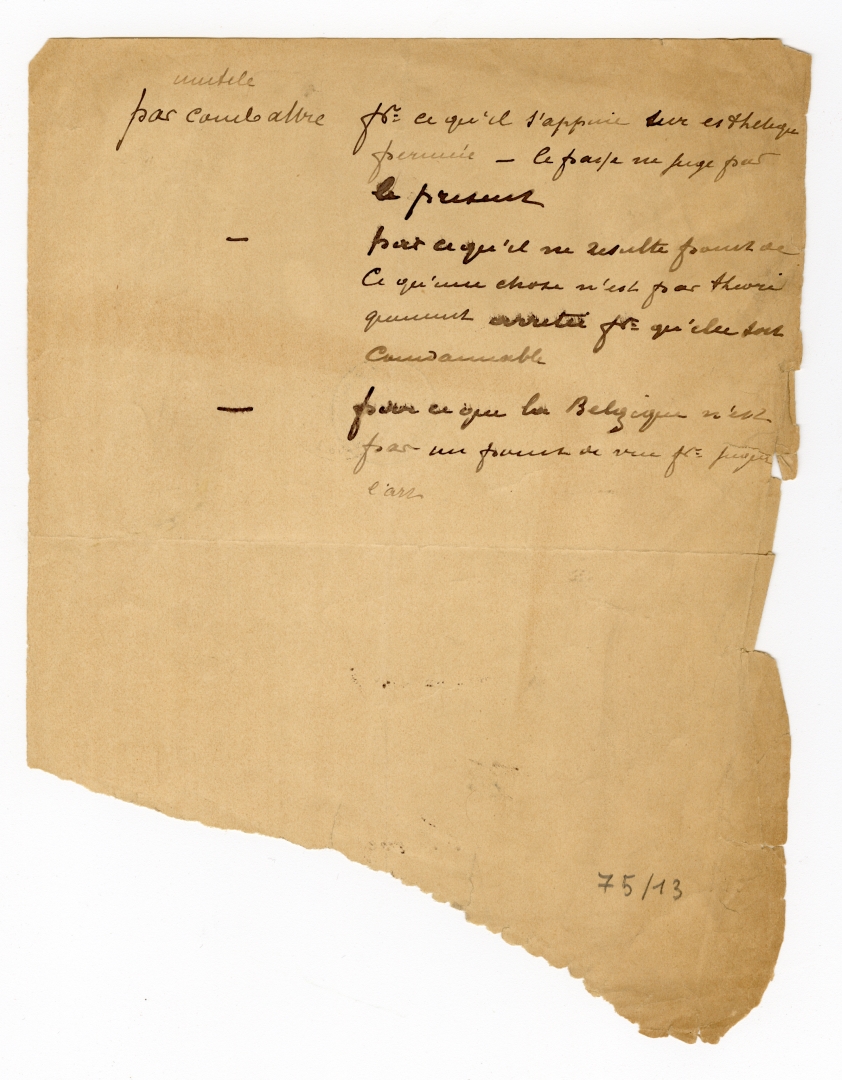 inutile
pas combattre pr ce qu'il s'appuie sur esthetique
périmée – le passé ne juge pas
le présent
– par ce qu'il ne resulte point de
ce qu'une chose n'est pas théori
quement arretée pr qu'elle soit
condamnable
– par ce que la Belgique n'est
pas un point de vue pr juger
l'art
75/13